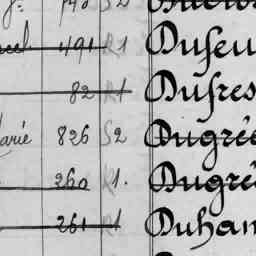 491 R1 Dufeu
82 R1 Dufres
arie 826 S2 Dugrée
260 R1. Dugré
261 R1 Duhan